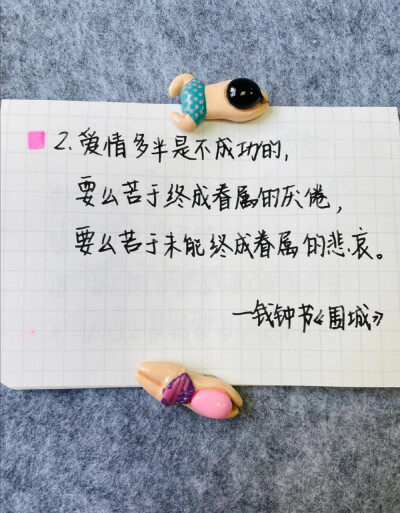 2.爱情多半是不成功的,
要么苦于终成眷属的厌倦,
要么苦于未能终成眷属的悲哀。
—钱钟书《围城》